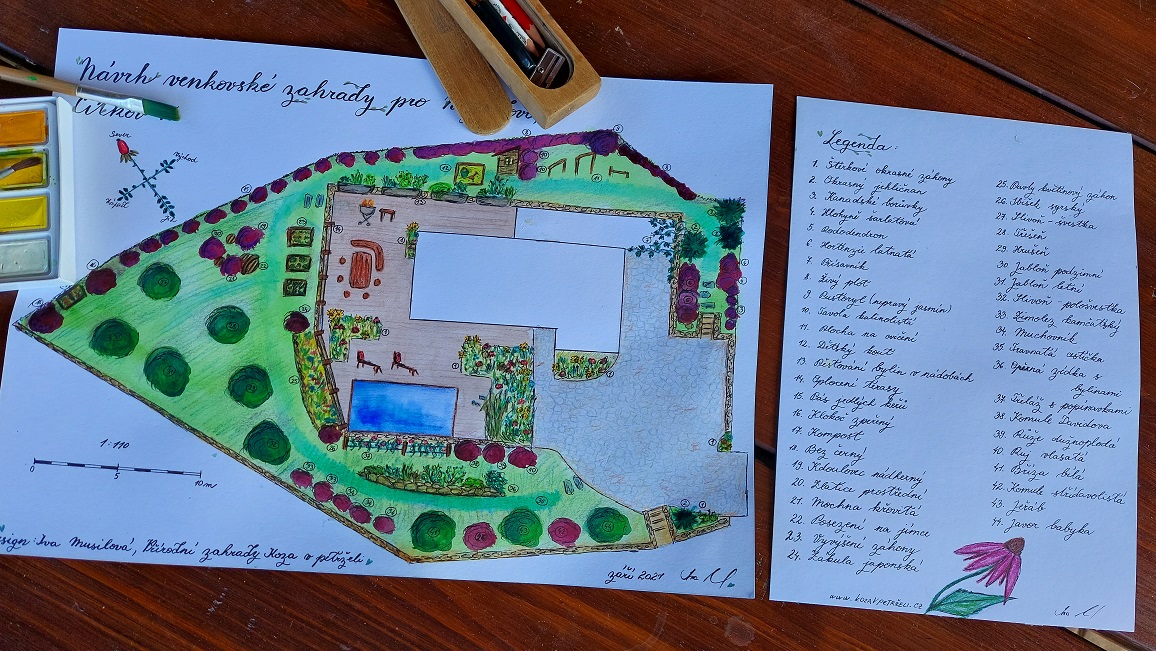 Návrh venkovské zahrady pro
Sever
Východ
Západ
1:110
0
5
10 m
Design: Iva Musilová, Přírodní zahrady Koza v petrželi
září 2021
Legenda:
1. Štěrkové okrasné záhony
2. Okrasný jehličnan
3. Kanadské borůvky
4. Hlohyně šarlatová
5. Rododendron
6. Hortenzie latnatá
7. Přísavník
8. Živý plot
9. Pustoryl (nepravý jasmín)
10. Tavola kalinolistá
11. Plocha na cvičení
12. Dětský kout
13. Pěstování bylin v nádobách
14. Oplocení terasy
15. Pás jedlých keřů
16. Klokoč zpeřený
17. Kompost
18. Bez černý
19. Kdoulovec nádherný
20. Zlatice prostřední
21. Mochna křovitá
22. Posezení na jímce
23. Vyvýšené záhony
24. Zákula japonská
25. Pavly květinový záhon
26. Ibišek syrský
27. Slivoň - švestka
28. Třešeň
29. Hrušeň
30. Jabloň podzimní
31. Jabloň letní
32. Slivoň - pološvestka
33. Zimolez kamčatský
34. Muchovník
35. Travnatá cestička
36. Opěrná zídka s
bylinami
37. Treláž s popínavkami
38. Komule Davidova
39. Růže dužnoplodá
40. Ruj vlasatá
41. Bříza bílá
42. Komule střídavolistá
43. Jeřáb
44. Javor babyka
www.kozavpetrzeli.cz